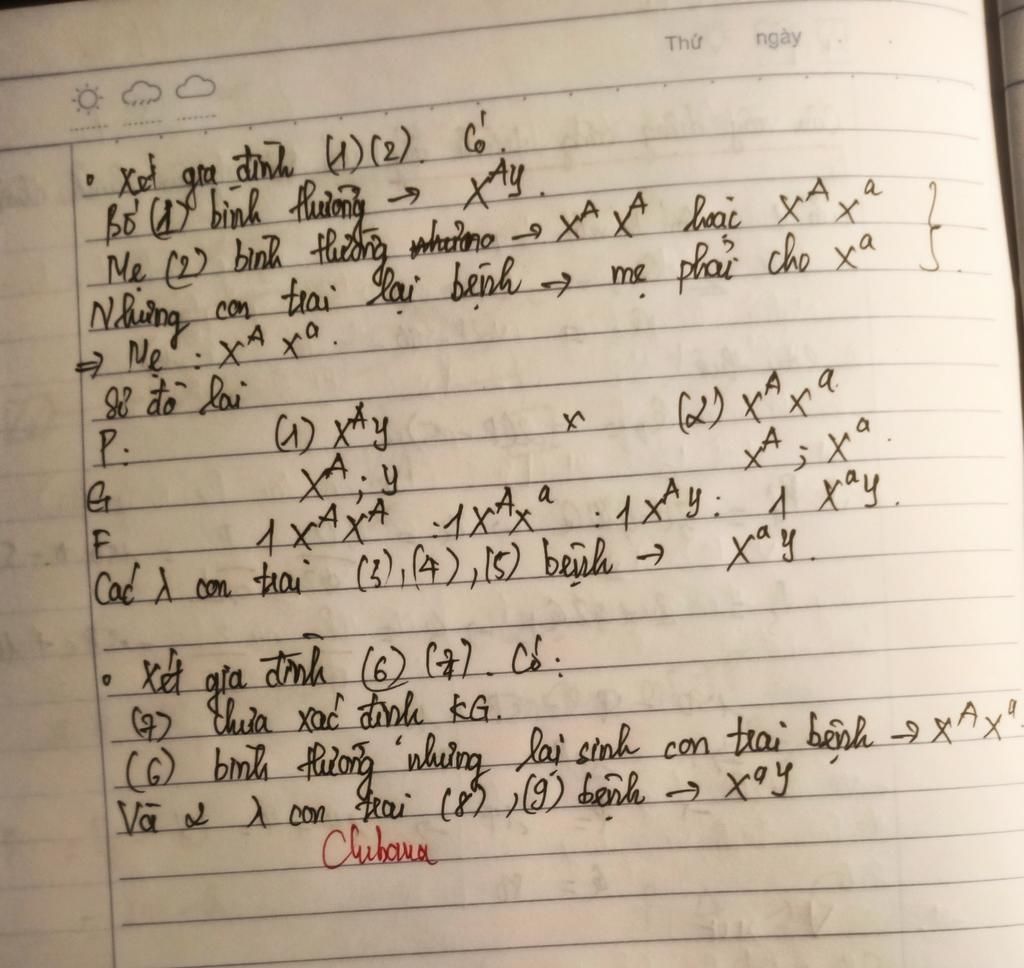 Thứ ngày
• Xét gia đình (1)(2). Có.
Bố (1) bình thường → X^A y.
Mẹ (2) bình thường → X^A X^A hoặc X^A X^a
Nhưng con trai lại bệnh → mẹ phải cho X^a
⇒ Mẹ : X^A X^a.
Sơ đồ lai
P. (1) X^A y x (2) X^A X^a
G X^A ; y X^A ; X^a.
F 1 X^A X^A : 1 X^A X^a : 1 X^A y : 1 X^a y.
Các λ con trai (3), (4), (5) bệnh → X^a y.
• Xét gia đình (6) (7). Có:
(7) chưa xác định KG.
(6) bình thường nhưng lại sinh con trai bệnh → X^A X^a
Và 2 λ con trai (8), (9) bệnh → X^a y